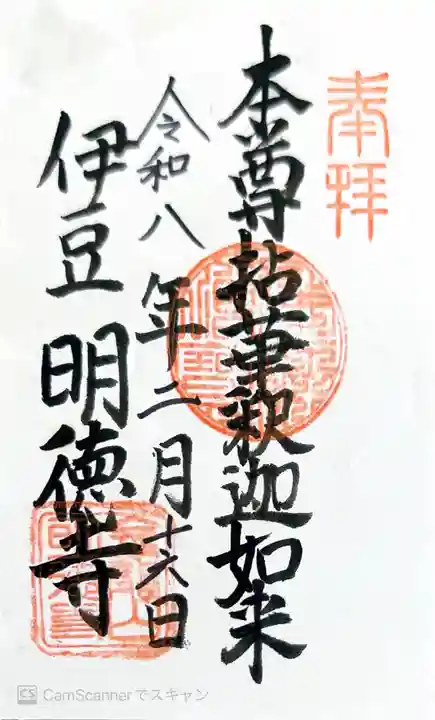 奉拝
本尊拈華釈迦如来
令和八年二月十六日
伊豆 明徳寺
CS CamScannerでスキャン